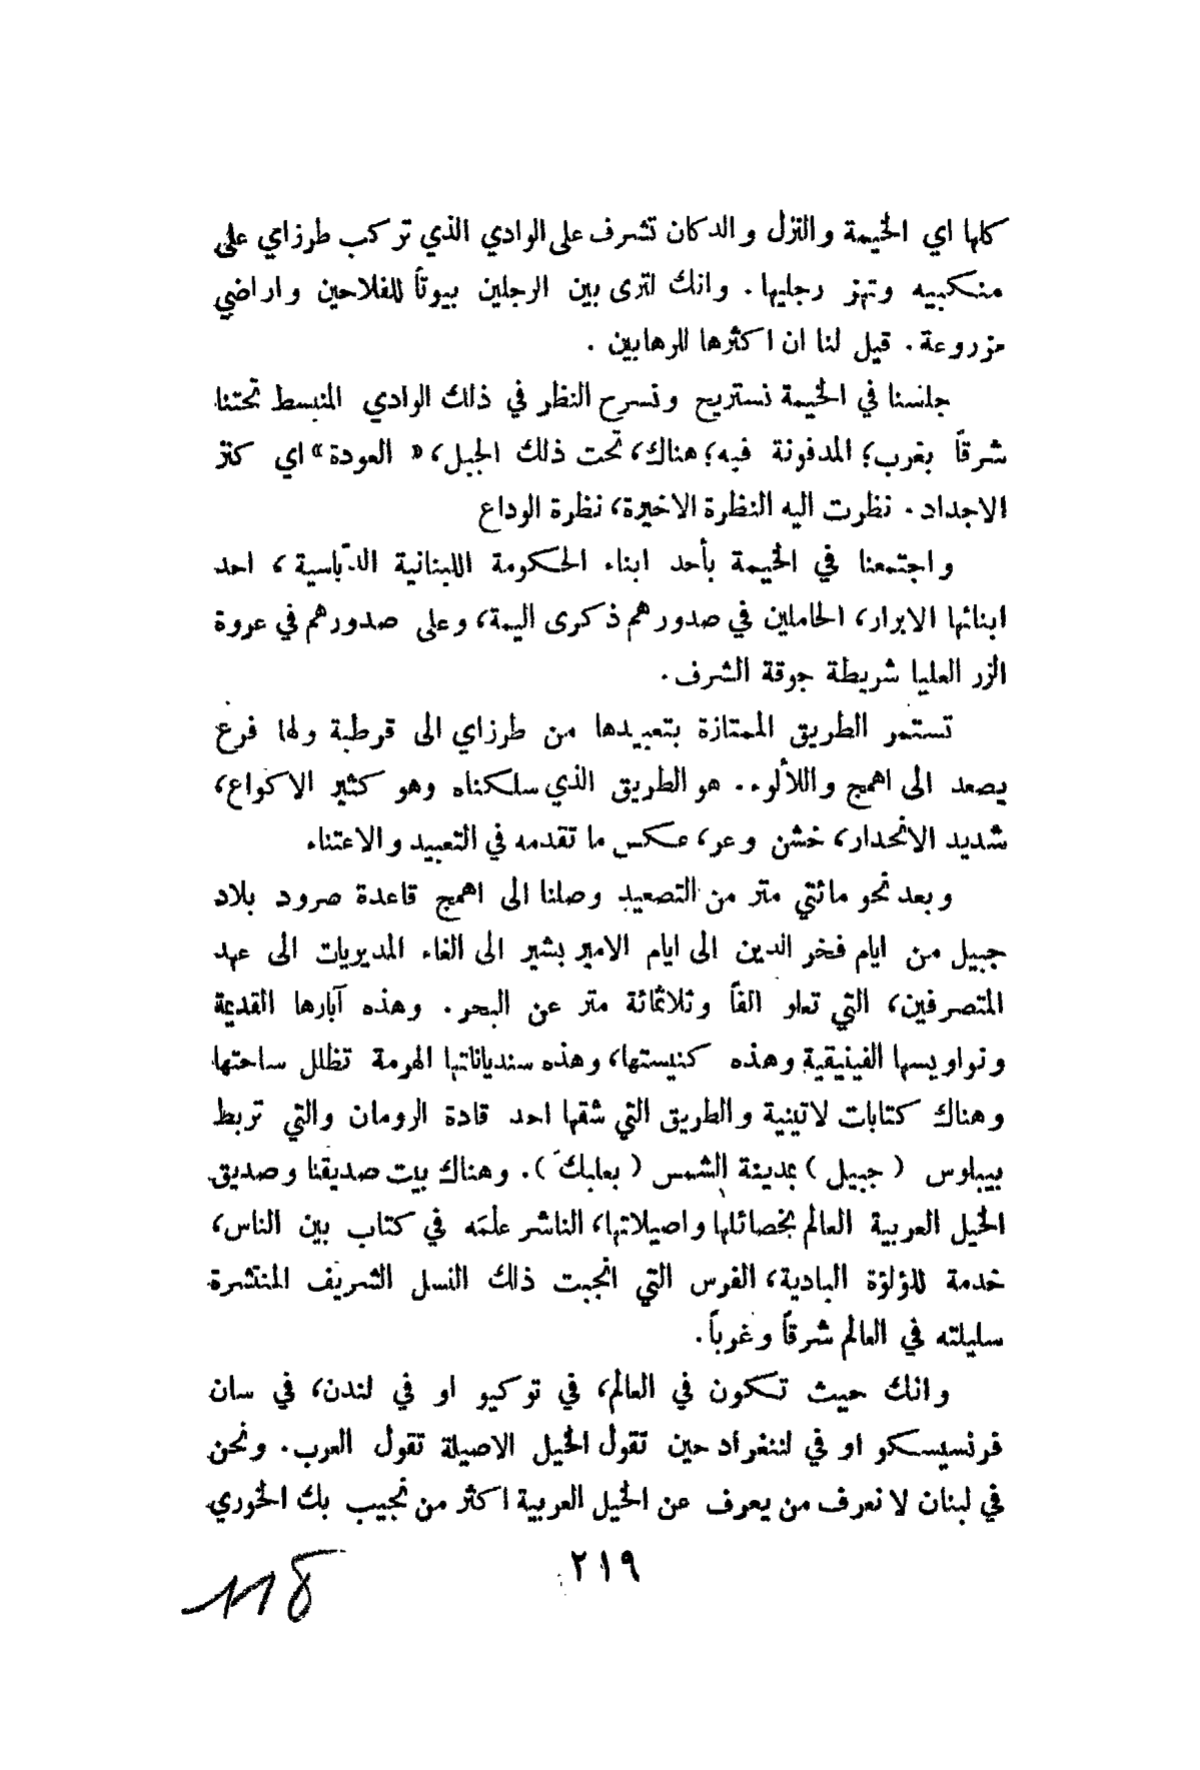 كلها اي الخيمة والنزل والدكان تشرف على الوادي الذي تركب طرزاي على
منكبيه وتهز رجليها. وانك لترى بين الرجلين بيوتاً للفلاحين واراضي
مزروعة. قيل لنا ان اكثرها للرهابين .
جلسنا في الخيمة نستريح ونسرح النظر في ذلك الوادي المنبسط تحتنا
شرقاً بغرب؛ المدفونة فيه؛ هناك، تحت ذلك الجبل، « العودة» اي كنز
الاجداد . نظرت اليه النظرة الاخيرة، نظرة الوداع
واجتمعنا في الخيمة بأحد ابناء الحكومة اللبنانية الدبّاسية، احد
ابنائها الابرار، الحاملين في صدورهم ذكرى اليمة، وعلى صدورهم في عروة
الزر العليا شريطة جوقة الشرف.
تستمر الطريق الممتازة بتعبيدها من طرزاي الى قرطبة ولها فرع
يصعد الى اهمج واللألوء.. هو الطريق الذي سلكناه وهو كثير الاكواع،
شديد الانحدار، خشن وعر، عكس ما تقدمه في التعبيد والاعتناء
وبعد نحو مائتي متر من التصعيد وصلنا الى اهمج قاعدة صرود بلاد
جبيل من ايام فخر الدين الى ايام الامير بشير الى الغاء المديريات الى عهد
المتصرفين، التي تعلو الفاً وثلاثمائة متر عن البحر. وهذه آبارها القديمة
ونواويسها الفينيقية وهذه كنيستها، وهذه سندياناتها الهرمة تظلل ساحتها
وهناك كتابات لاتينية والطريق التي شقها احد قادة الرومان والتي تربط
بيبلوس ( جبيل ) بمدينة الشمس ( بعلبك ). وهناك بيت صديقنا وصديق
الخيل العربية العالم بخصائلها واصيلاتها، الناشر علمَه في كتاب بين الناس،
خدمة للؤلؤة البادية، الفرس التي انجبت ذلك النسل الشريف المنتشرة
سليلته في العالم شرقاً وغرباً.
وانك حيث تكون في العالم، في توكيو او في لندن، في سان
فرنسيسكو او في لننغراد حين تقول الخيل الاصيلة تقول العرب. ونحن
في لبنان لا نعرف من يعرف عن الخيل العربية اكثر من نجيب بك الخوري
٢١٩